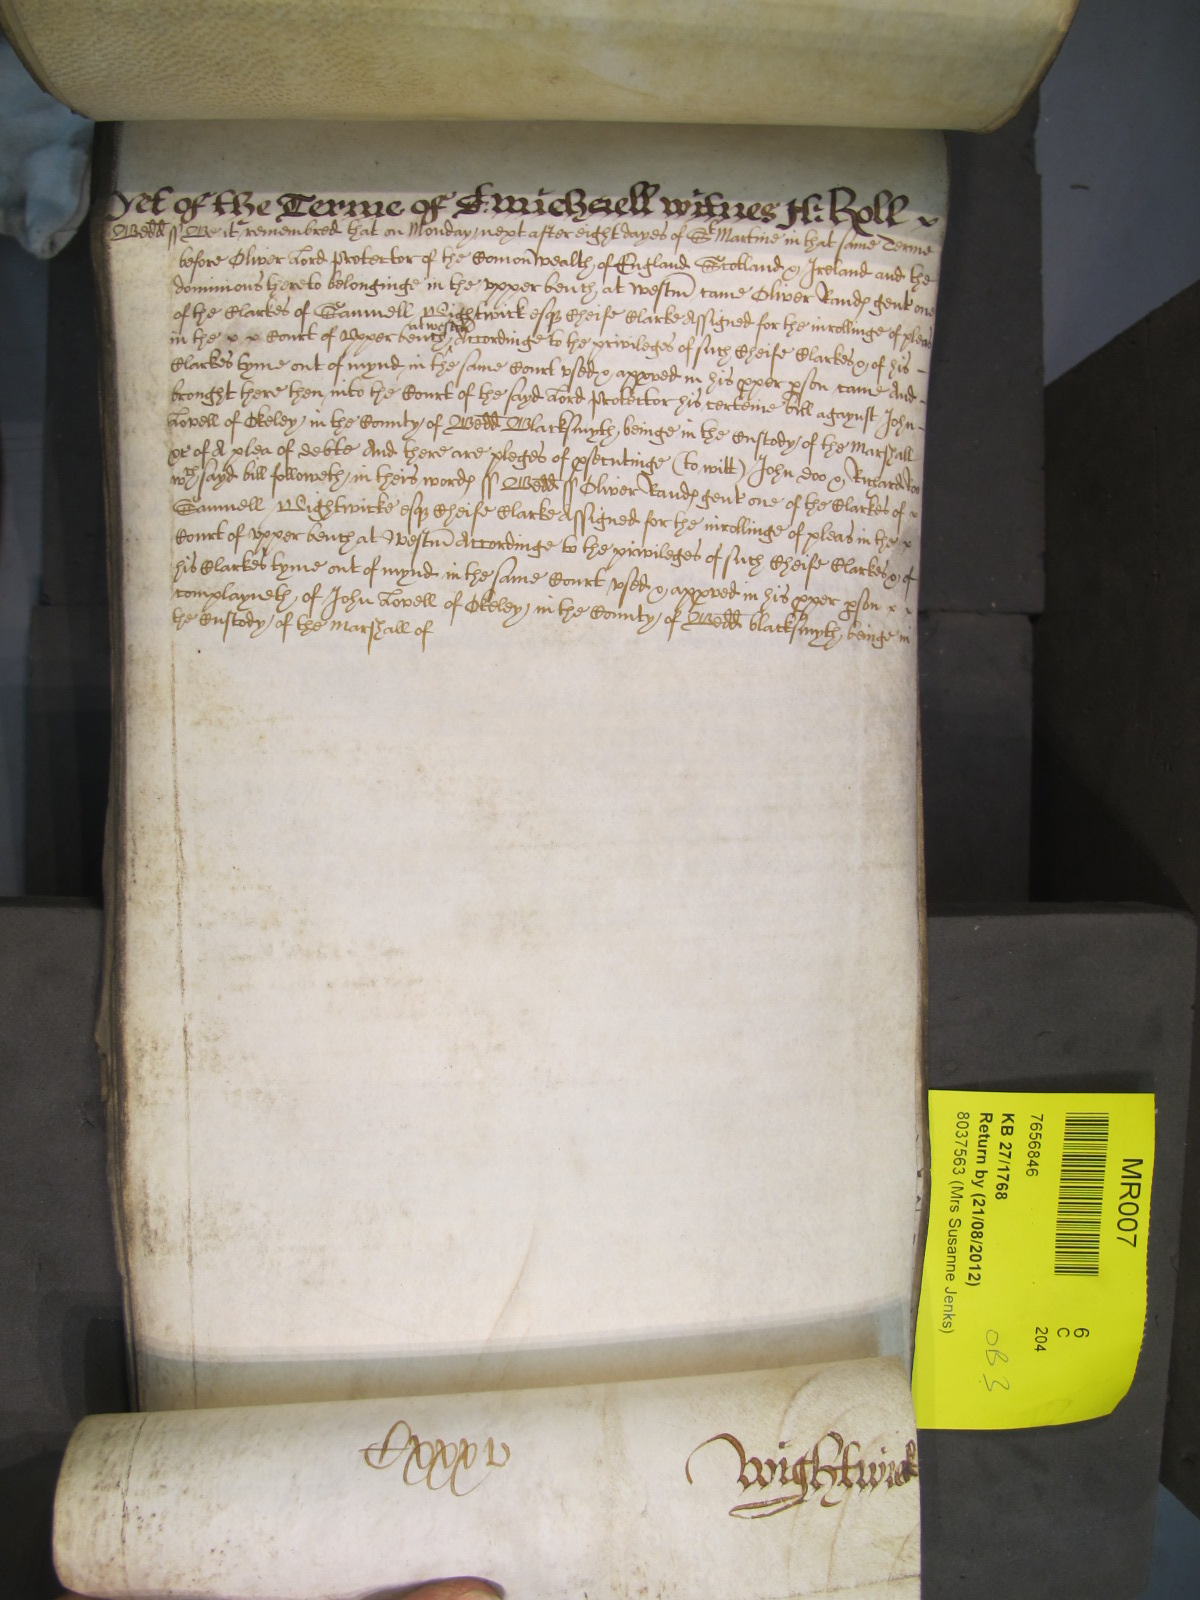 Yet of the Terme of St. Michaell witnes H: Roll x
Bedd ss Be it remembred that on Monday next after eight dayes of St Martine in that same Terme
before Oliver Lord Protector of the Comonwealth of England Scotland & Ireland and the
dominions thereto belonginge in the upper bench at Westm came Oliver Rand gent one
of the Clarkes of Samuell Wightwick esqr Cheife Clarke Assigned for the inrollinge of pleas
in the x x Court of Upper bench at westm Accordinge to the priviledges of such Cheife Clarkes & of his -
Clarkes tyme out of mynd in the same Court used & appved in his pper pson came And -
brought here then into the Court of the sayd Lord Protector his certeine bill agaynst John -
Lovell of Okeley in the County of Bedd Blacksmyth beinge in the Custody of the Marshall
&c of A plea of debte And there are pleges of psecutinge (to witt) John doo & Richard Roo
wch sayd bill followeth in theis words ss Bedd ss Oliver Rand gent one of the Clarkes of x
Samuell Wightwicke esqr Cheife Clarke Assigned for the inrollinge of pleas in the x
Court of upper bench at Westm Accordinge to the priviledges of such Cheife Clarkes & of
his Clarkes tyme out of mynd in the same Court used & appved in his pper pson x x
complayneth of John Lovell of Okeley in the County of Bedd blacksmyth beinge in
the Custody of the Marshall of
Cxxxv
Wightwick
MR007
7656846
KB 27/1768
Return by (21/08/2012)
8037563 (Mrs Susanne Jenks)
6
C
204
OB 3